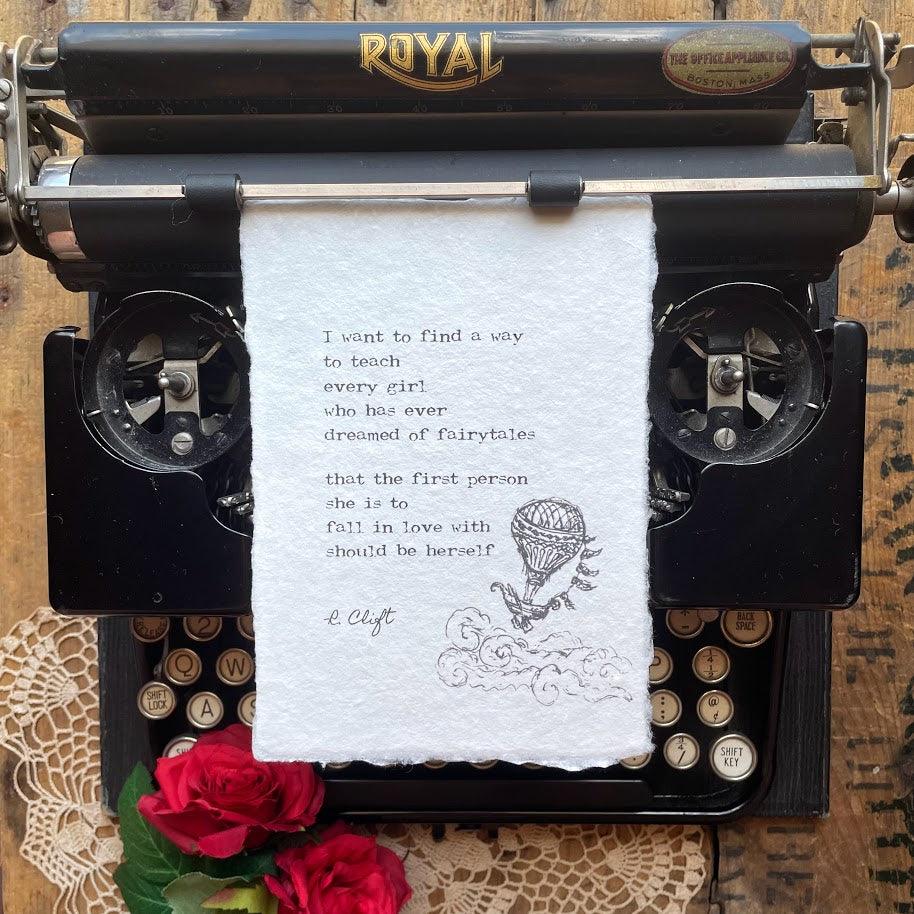 ROYAL
THE OFFICE APPLIANCE CO.
BOSTON, MASS
I want to find a way
to teach
every girl
who has ever
dreamed of fairytales
that the first person
she is to
fall in love with
should be herself
R. Clift
2
BACK
SPACE
Q W P 1/4 1/2
SHIFT
LOCK
A : ; @ ¢
3/4
SHIFT
KEY